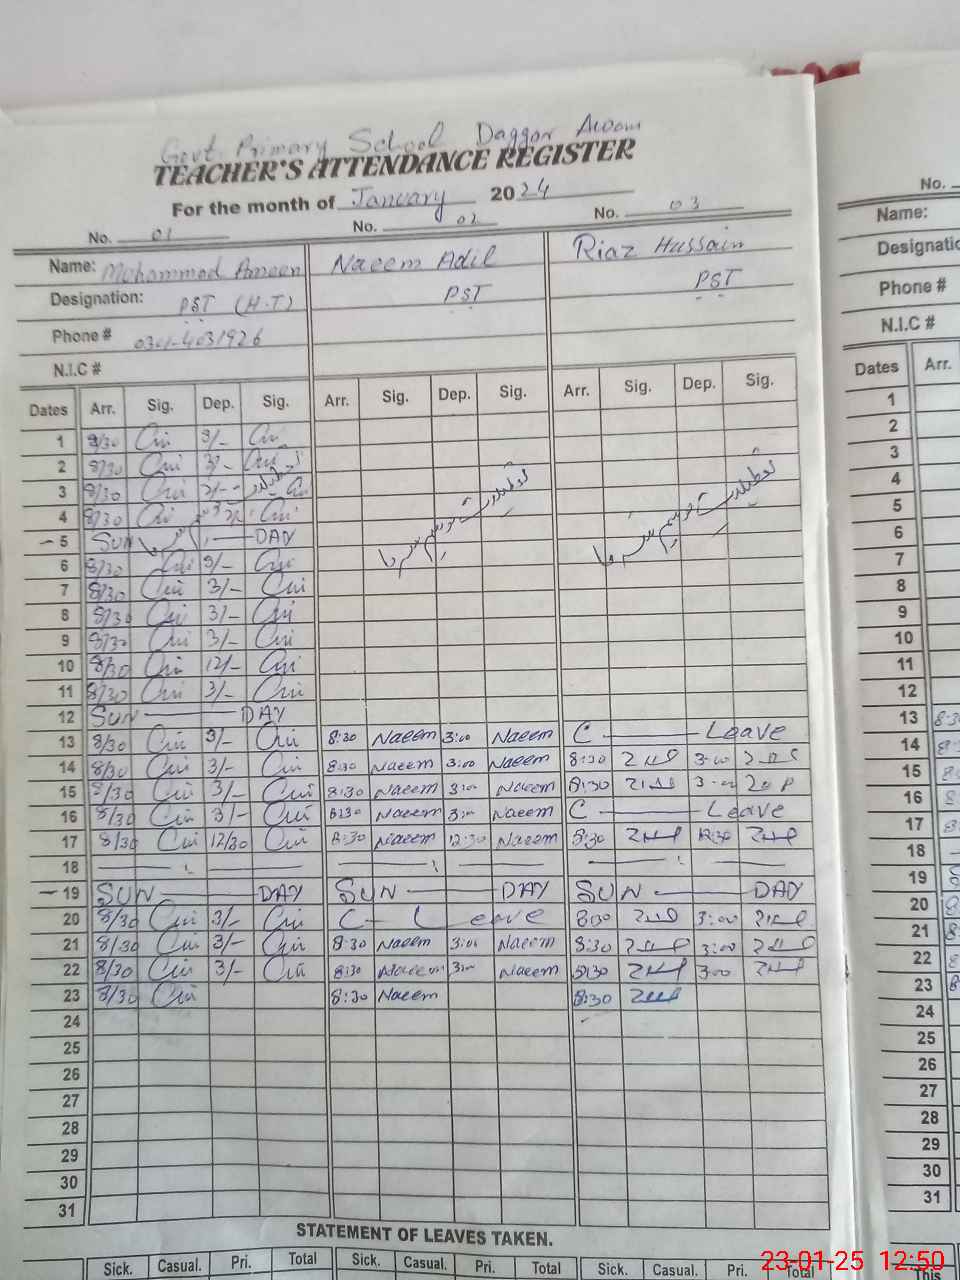 Govt. Primary School Daggar Awam
TEACHER'S ATTENDANCE REGISTER
For the month of January 2024
No. 01 No. 02 No. 03
Name: Mohammad Ameen Naeem Adil Riaz Hussain
Designation: PST (H.T) PST PST
Phone #
N.I.C #
Dates Arr. Sig. Dep. Sig. Arr. Sig. Dep. Sig. Arr. Sig. Dep. Sig.
1 8/30 3/-
2 8/30 3/-
3 8/30 تعطیلات
4 8/30 تعطیلات موسم سرما تعطیلات موسم سرما
5 SUN DAY
6 8/30 3/-
7 8/30 3/-
8 8/30 3/-
9 8/30 3/-
10 8/30 12/-
11 8/30 3/-
12 SUN DAY
13 8/30 3/- 8:30 Naeem 3:00 Naeem C Leave
14 8/30 3/- 8:30 Naeem 3:00 Naeem 8:30 3:00
15 8/30 3/- 8:30 Naeem 3:00 Naeem 8:30 3:00
16 8/30 3/- 8:30 Naeem 3:00 Naeem C Leave
17 8/30 12/30 8:30 Naeem 12:30 Naeem 8:30 12:30
18
19 SUN DAY SUN DAY SUN DAY
20 8/30 3/- C Leave 8:30 3:00
21 8/30 3/- 8:30 Naeem 3:00 Naeem 8:30 3:00
22 8/30 3/- 8:30 Naeem 3:00 Naeem 8:30 3:00
23 8/30 8:30 Naeem 8:30
24
25
26
27
28
29
30
31
STATEMENT OF LEAVES TAKEN.
Sick. Casual. Pri. Total Sick. Casual. Pri. Total Sick. Casual. Pri. Total
No.
Name:
Designatio
Phone #
N.I.C #
Dates Arr.
1
2
3
4
5
6
7
8
9
10
11
12
13 8:30
14
15
16
17
18
19
20
21
22
23
24
25
26
27
28
29
30
31
This
23-01-25 12:50